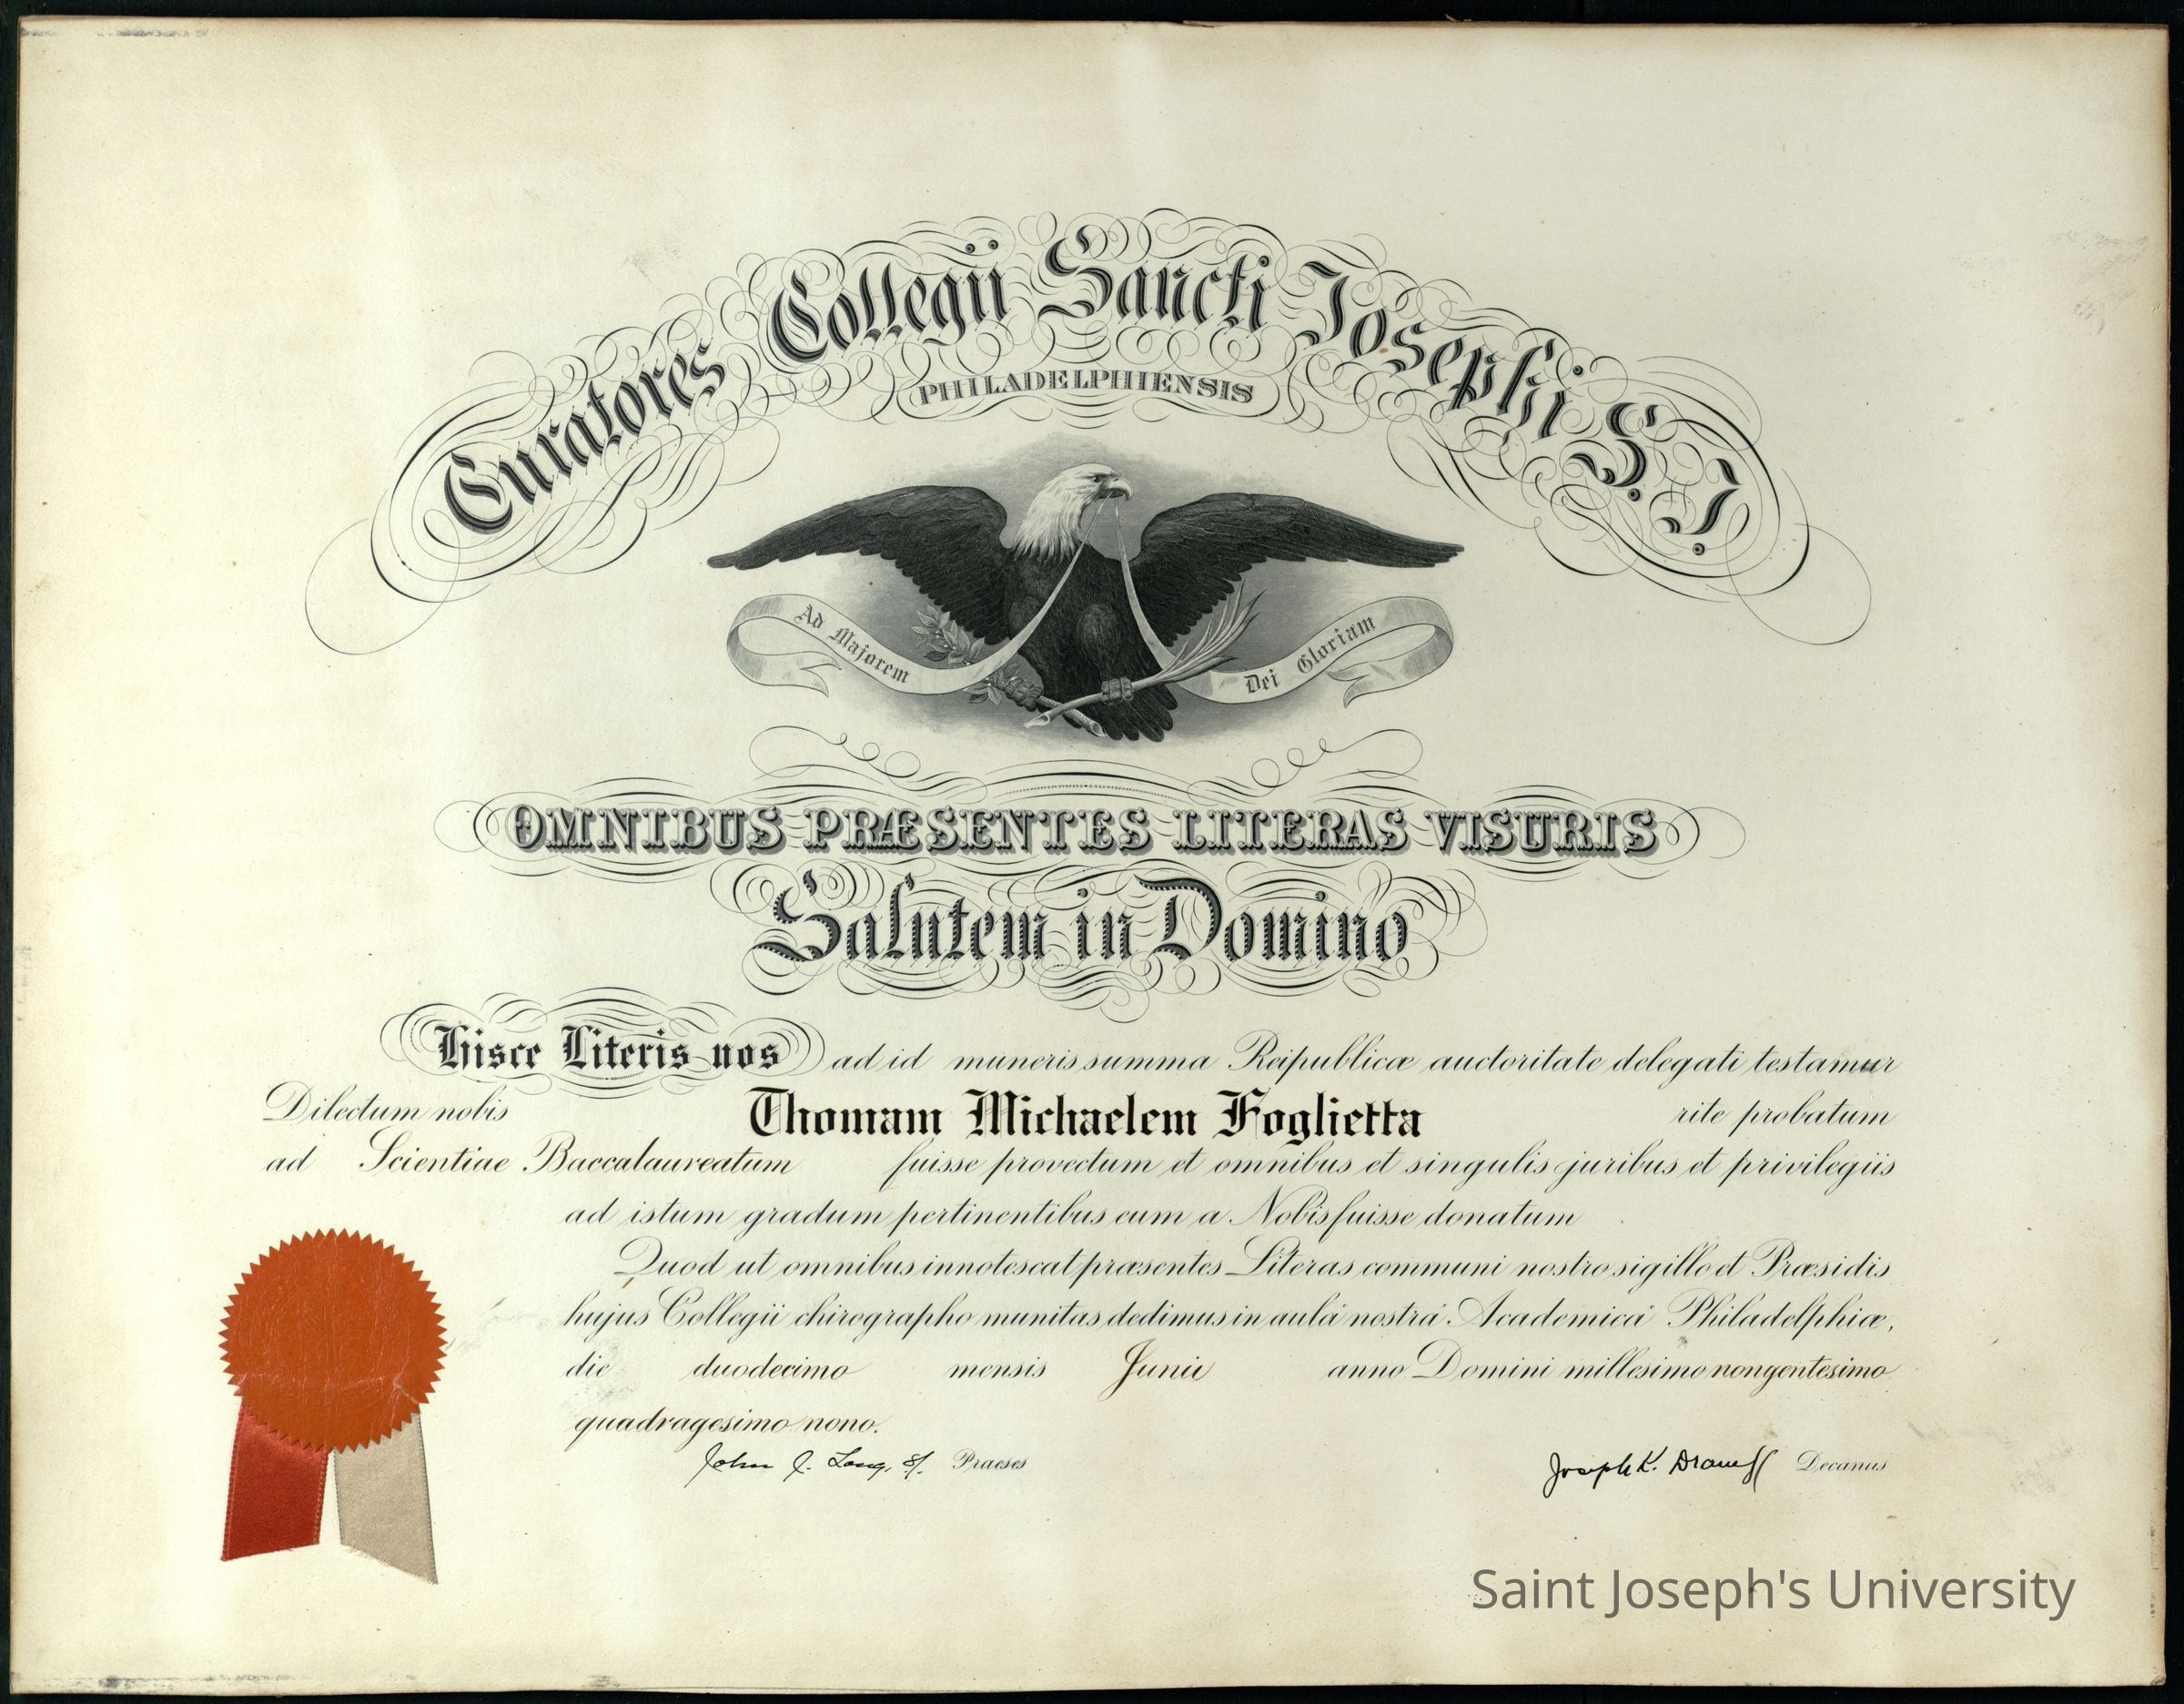 Curatores Collegii Sancti Josephi S.J.
PHILADELPHIENSIS
Ad Majorem Dei Gloriam
OMNIBUS PRÆSENTES LITERAS VISURIS
Salutem in Domino
Hisce Literis nos ad id muneris summa Reipublicæ auctoritate delegati testamur
Dilectum nobis Thomam Michaelem Foglietta rite probatum
ad Scientiae Baccalaureatum fuisse provectum et omnibus et singulis juribus et privilegiis
ad istum gradum pertinentibus eum a Nobis fuisse donatum
Quod ut omnibus innotescat præsentes Literas communi nostro sigillo et Præsidis
hujus Collegii chirographo munitas dedimus in aulá nostrá Academicá Philadelphiæ,
die duodecimo mensis Junii anno Domini millesimo nongentesimo
quadragesimo nono.
John J. Long, S.J. Praeses
Joseph K. Decanus
Saint Joseph's University